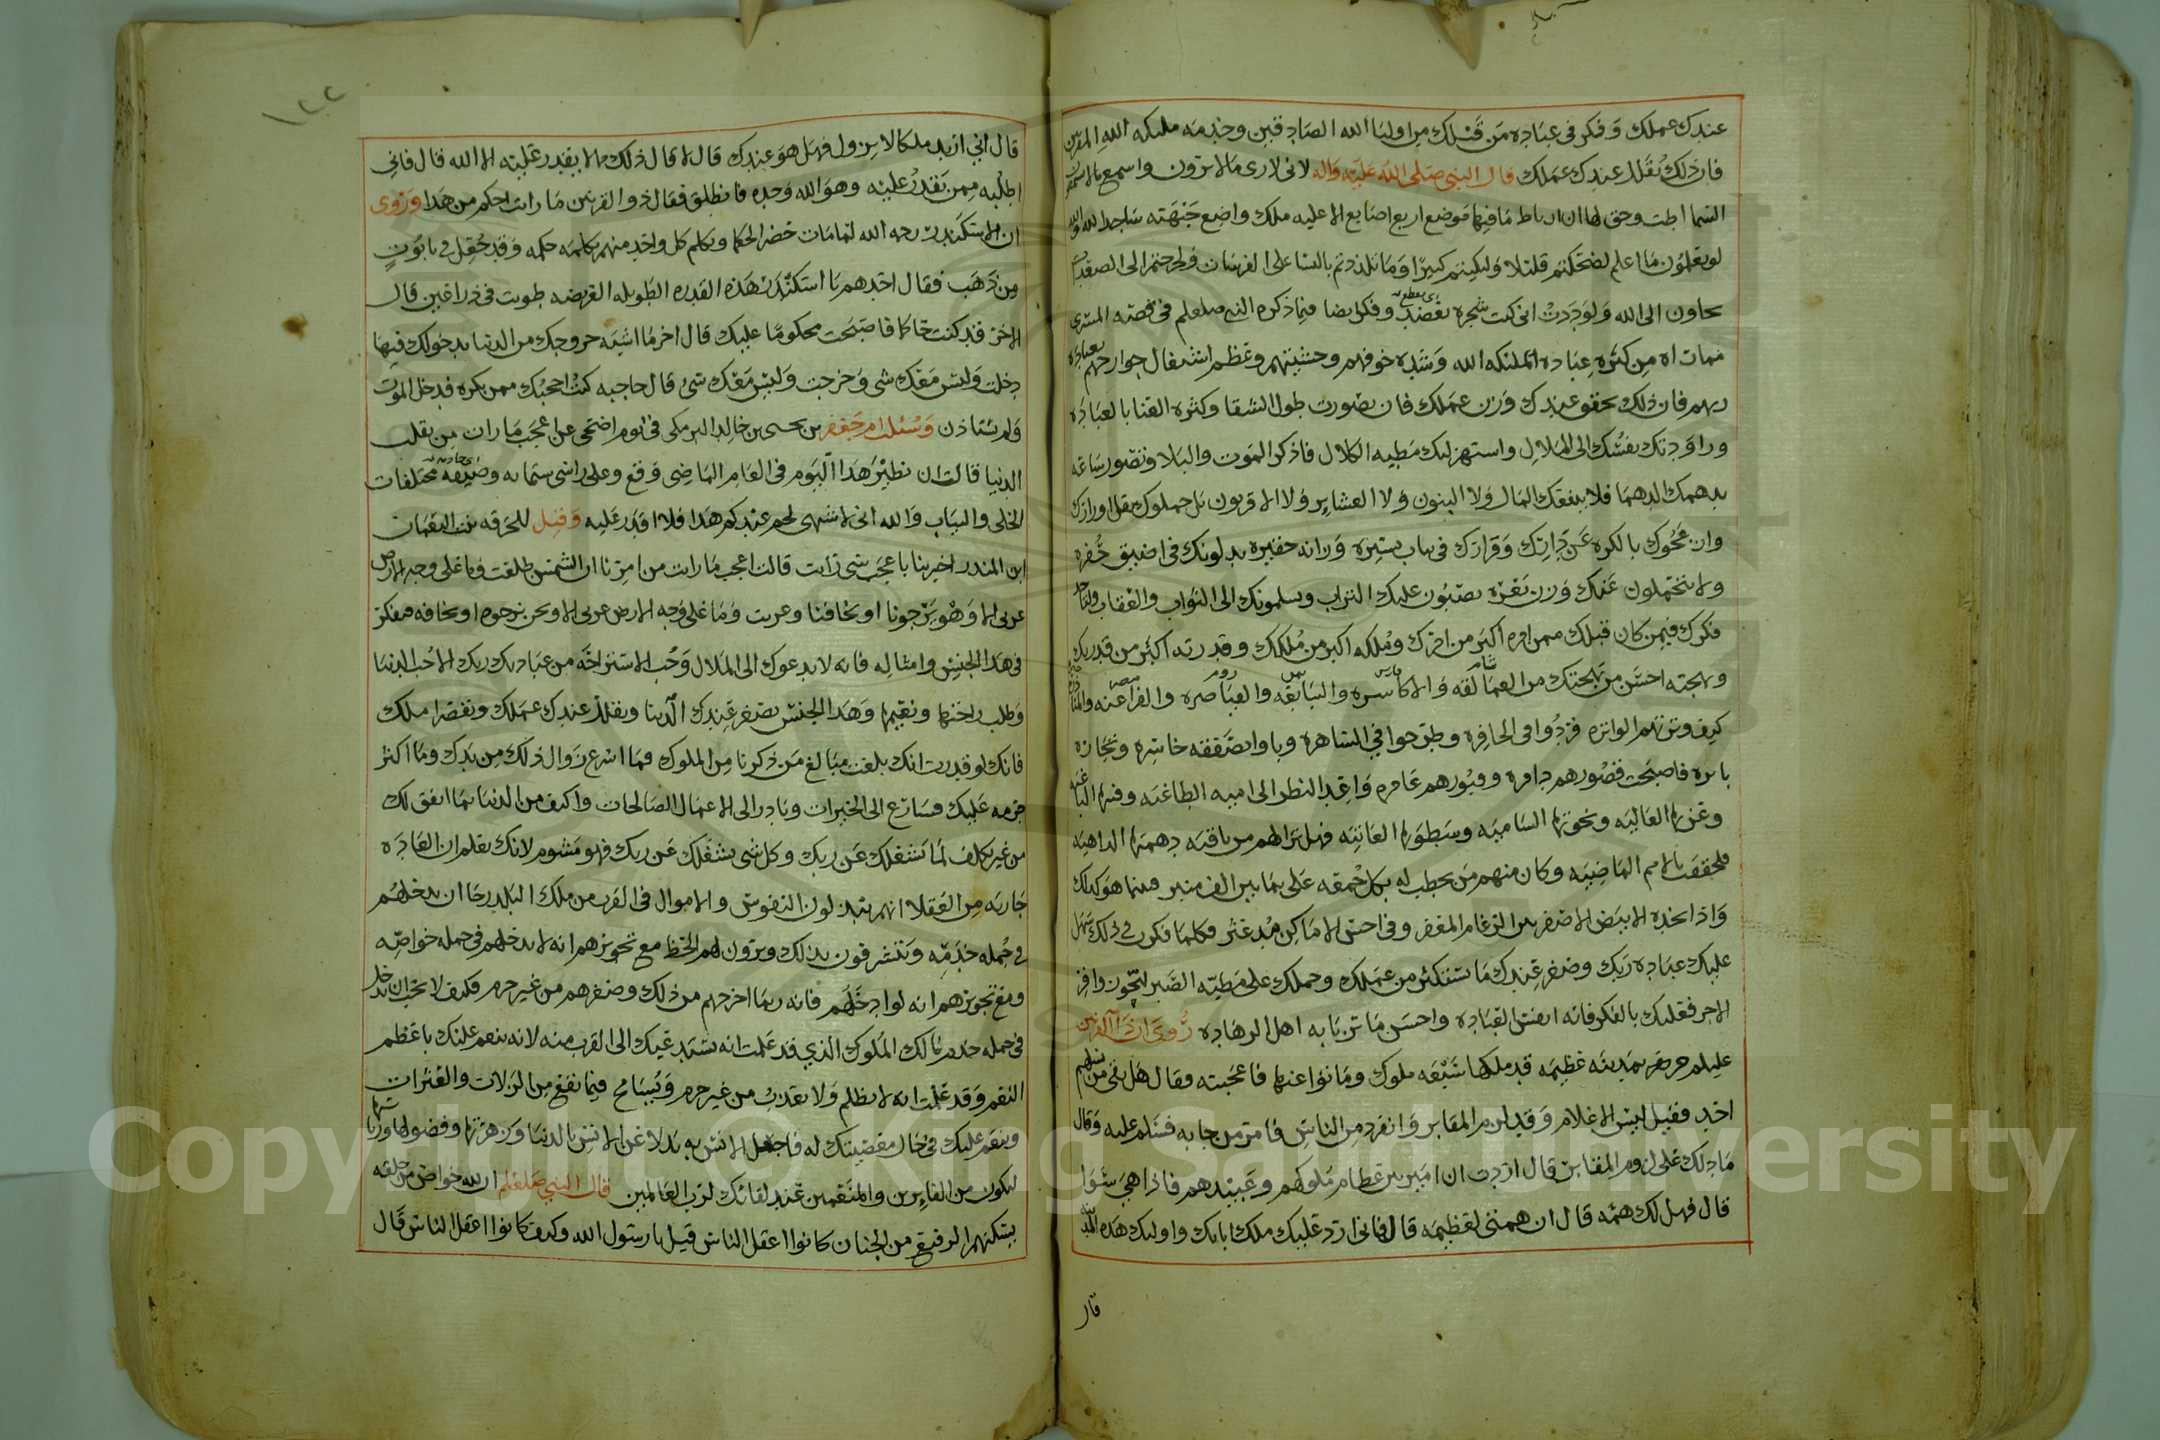 عندك عملك وفكر في عباده من قبلك من اوليا الله الصادقين وخدمه ملئكه الله المقربين
فان ذلك يقلل عندك عملك قال النبي صلى الله عليه واله لاني لارى مالا ترون واسمع مالا تسمعون
السما اطت وحق لها ان تاط ما فيها موضع اربع اصابع الا عليه ملك واضع جبهته ساجدا لله والله
لو تعلمون ما اعلم لضحكتم قليلا ولبكيتم كثيرا وما تلذذتم بالنسا على الفرشات ولخرجتم الى الصعدات
تجارون الى الله ولوددت اني كنت شجره تعضد وفكر ايضا فيما ذكره النبي صلعلم في قصه المسرى
مما راه من كثره عباده الملئكه الله وشده خوفهم وخشيتهم وعظم اشتغال جوارحهم بعباده
ربهم فان ذلك يحقر عندك وزن عملك فان تصورت طول الشقا وكثره العنا بالعباده
وراودتك نفسك الى الملال واستهزتك مطيه الكلال فاذكر الموت والبلا وتصور ساعه
يدهمك الدهما فلا ينفعك المال ولا البنون ولا العشاير ولا الاقربون بل حملوك بثقل اوزارك
وازعجوك بالكره عن دارك وقرارك في ثياب يسيره وزانه حقيره يدلونك في اضيق حفره
ولا يتحملون عنك وزن بعره يصبون عليك التراب ويسلمونك الى الثواب والعقاب
فكرك فيمن كان قبلك ممن امره اكبر من امرك وملكه اكبر من ملكك وقدرته اكبر من قدرتك
وبهجته احسن من بهجتك من العمالقه والاكاسره والتبابعه والقياصره والفراعنه
كيف وترتهم الواتره فردوا في الحافره وطرحوا في الساهره وباوا بصفقه خاسره وتجاره
بائره فاصبحت قصورهم دامره وقبورهم عامره واعد النظر الى اميه الطاغيه وفتنها الباغيه
وعزتها العاليه ونخوتها الساميه وسطوتها العاتيه فهل ترا لهم من باقيه دهمتها الداهيه
فلحقت بالامم الماضيه وكان منهم من يخطب له بكل جمعه على ثمانين الف منبر فبينما هو كذلك
واذا بخده الابيض الاصفر في الرغام المعفر وفي احسن الاماكن مبدعثر فكلما فكرت في ذلك سهل
عليك عباده ربك وصغر عندك ما تستكثر من عملك وحملك على مطيه الصبر لتحون وافر
الاجر فعليك بالفكر فانه افضل العباده واحسن ما تزيا به اهل الزهاده روي ان ذا القرنين
عليلم مر بمدينه عظيمه قد ملكها سبعه ملوك وماتوا عنها فاعجبته وقال هل بقي من نسلهم
احد فقيل ليس الا غلام وقد لزم المقابر وانفرد من الناس فامر من جا به فسلم عليه وقال
ما دلك على لزوم المقابر قال اردت ان اميز بين عظام ملوكهم وعبيدهم فاذا هي سوا
قال فهل لك همه قال ان همتي لعظيمه قال فاني ارد عليك ملك ابايك واوليك هذه البلد
قال
١٢٢
قال اني اريد ملكا لا يزول فهل هو عندك قال لا قال ذلك ما لا يقدر عليه الا الله قال فاني
اطلبه ممن يقدر عليه وهو الله وحده فانطلق فقال ذو القرنين ما رايت احكم من هذا وروى
ان الاسكندر رحمه الله لما مات حضر الحكما وتكلم كل واحد منهم بكلمه حكمه وقد جعل في تابوت
من ذهب فقال احدهم يا اسكندر هذه القدره الطويله العريضه طويت في ذراعين قال
الاخر قد كنت حاكما فاصبحت محكوما عليك قال اخر ما اشبه خروجك من الدنيا بدخولك فيها
دخلت وليس معك شي وخرجت وليس معك شي قال حاجبه كنت احجبك ممن تكره فدخل الموت
ولم يستاذن وسئلت ام جعفر بن يحيى بن خالد البرمكي في يوم اضحى عن اعجب ما رات من تقلب
الدنيا قالت ان نظير هذا اليوم في العام الماضي وقع وعلى راسي ستمايه وصيفه مختلفات
الحلي والثياب والله اني لاشتهي لحم عندكم هذا فلا اقدر عليه وقيل للحرقه بنت النعمان
ابن المنذر اخبرينا باعجب شي رايت قالت اعجب ما رايت من امرنا ان الشمس طلعت وما على وجه الارض
عربي الا وهو يرجونا او يخافنا وغربت وما على وجه الارض عربي الا ونحن نرجوه او نخافه ففكر
في هذا الجنس وامثاله فانه لا يدعوك الى الملال وحب الاستراحه من عباده ربك الا حب الدنيا
وطلب راحتها ونعيمها وهذا الجنس يصغر عندك الدنيا ويقلل عندك عملك ويقصر املك
فانك لو قدرت انك بلغت مبالغ من ذكرنا من الملوك فما اسرع زوال ذلك من يدك وما اكثر
جرمه عليك فسارع الى الخيرات وبادر الى الاعمال الصالحات واكتف من الدنيا بما اتفق لك
من غير تكلف لما يشغلك عن ربك وكل شي يشغلك عن ربك فهو مشوم لانك تعلم ان العاده
جاريه من العقلا انهم يبذلون النفوس والاموال في القرب من ملك البلد رجا ان يدخلهم
في جمله خدمه ويتشرفون بذلك ويرون لهم الحظ مع تجويزهم انه لا يدخلهم في جمله خواصه
ومع تجويزهم انه لو ادخلهم فانه ربما اخرجهم من ذلك وصغرهم من غير جرم فكيف لا تحب ان تدخل
في جمله خدم مالك الملوك الذي قد علمت انه يستدعيك الى القرب منه لانه ينعم عليك باعظم
النعم وقد علمت انه لا يظلم ولا يعذب من غير جرم ويسامح فيما يقع من الزلات والعثرات
وينعم عليك في حال معصيتك له فاجعل الانس به بدلا عن الانس بالدنيا وزهرتها وفضولها وزينتها
لتكون من الفايزين والمنعمين عند لقائك لرب العالمين قال النبي صلعلم ان لله خواص من خلقه
يسكنهم الرفيع من الجنان كانوا اعقل الناس قيل يا رسول الله وكيف كانوا اعقل الناس قال
Copyright © King Saud University